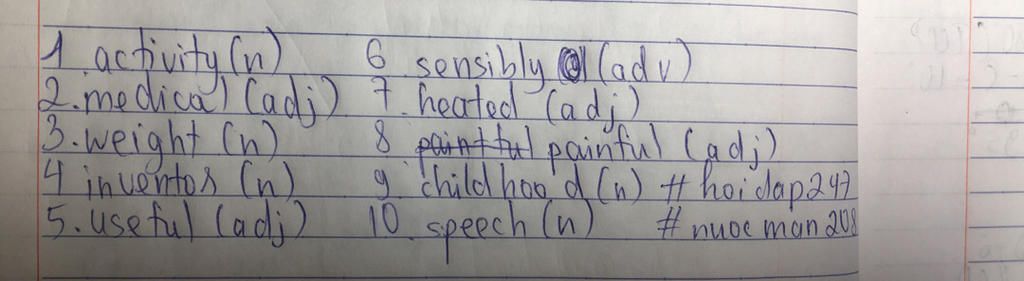 1. activity (n)
2. medical (adj)
3. weight (n)
4 inventor (n)
5. useful (adj)
6 sensibly (adv)
7. heated (adj)
8 painful (adj)
9. childhood (n) #hoidap247
10. speech (n) #nuocman208